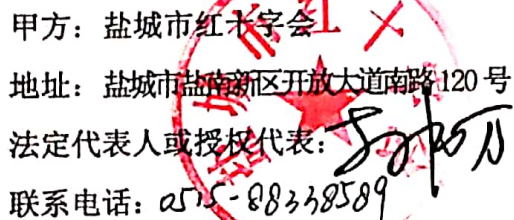 甲方：盐城市红十字会
地址：盐城市盐南新区开放大道南路120号
法定代表人或授权代表：
联系电话：0515-88338589